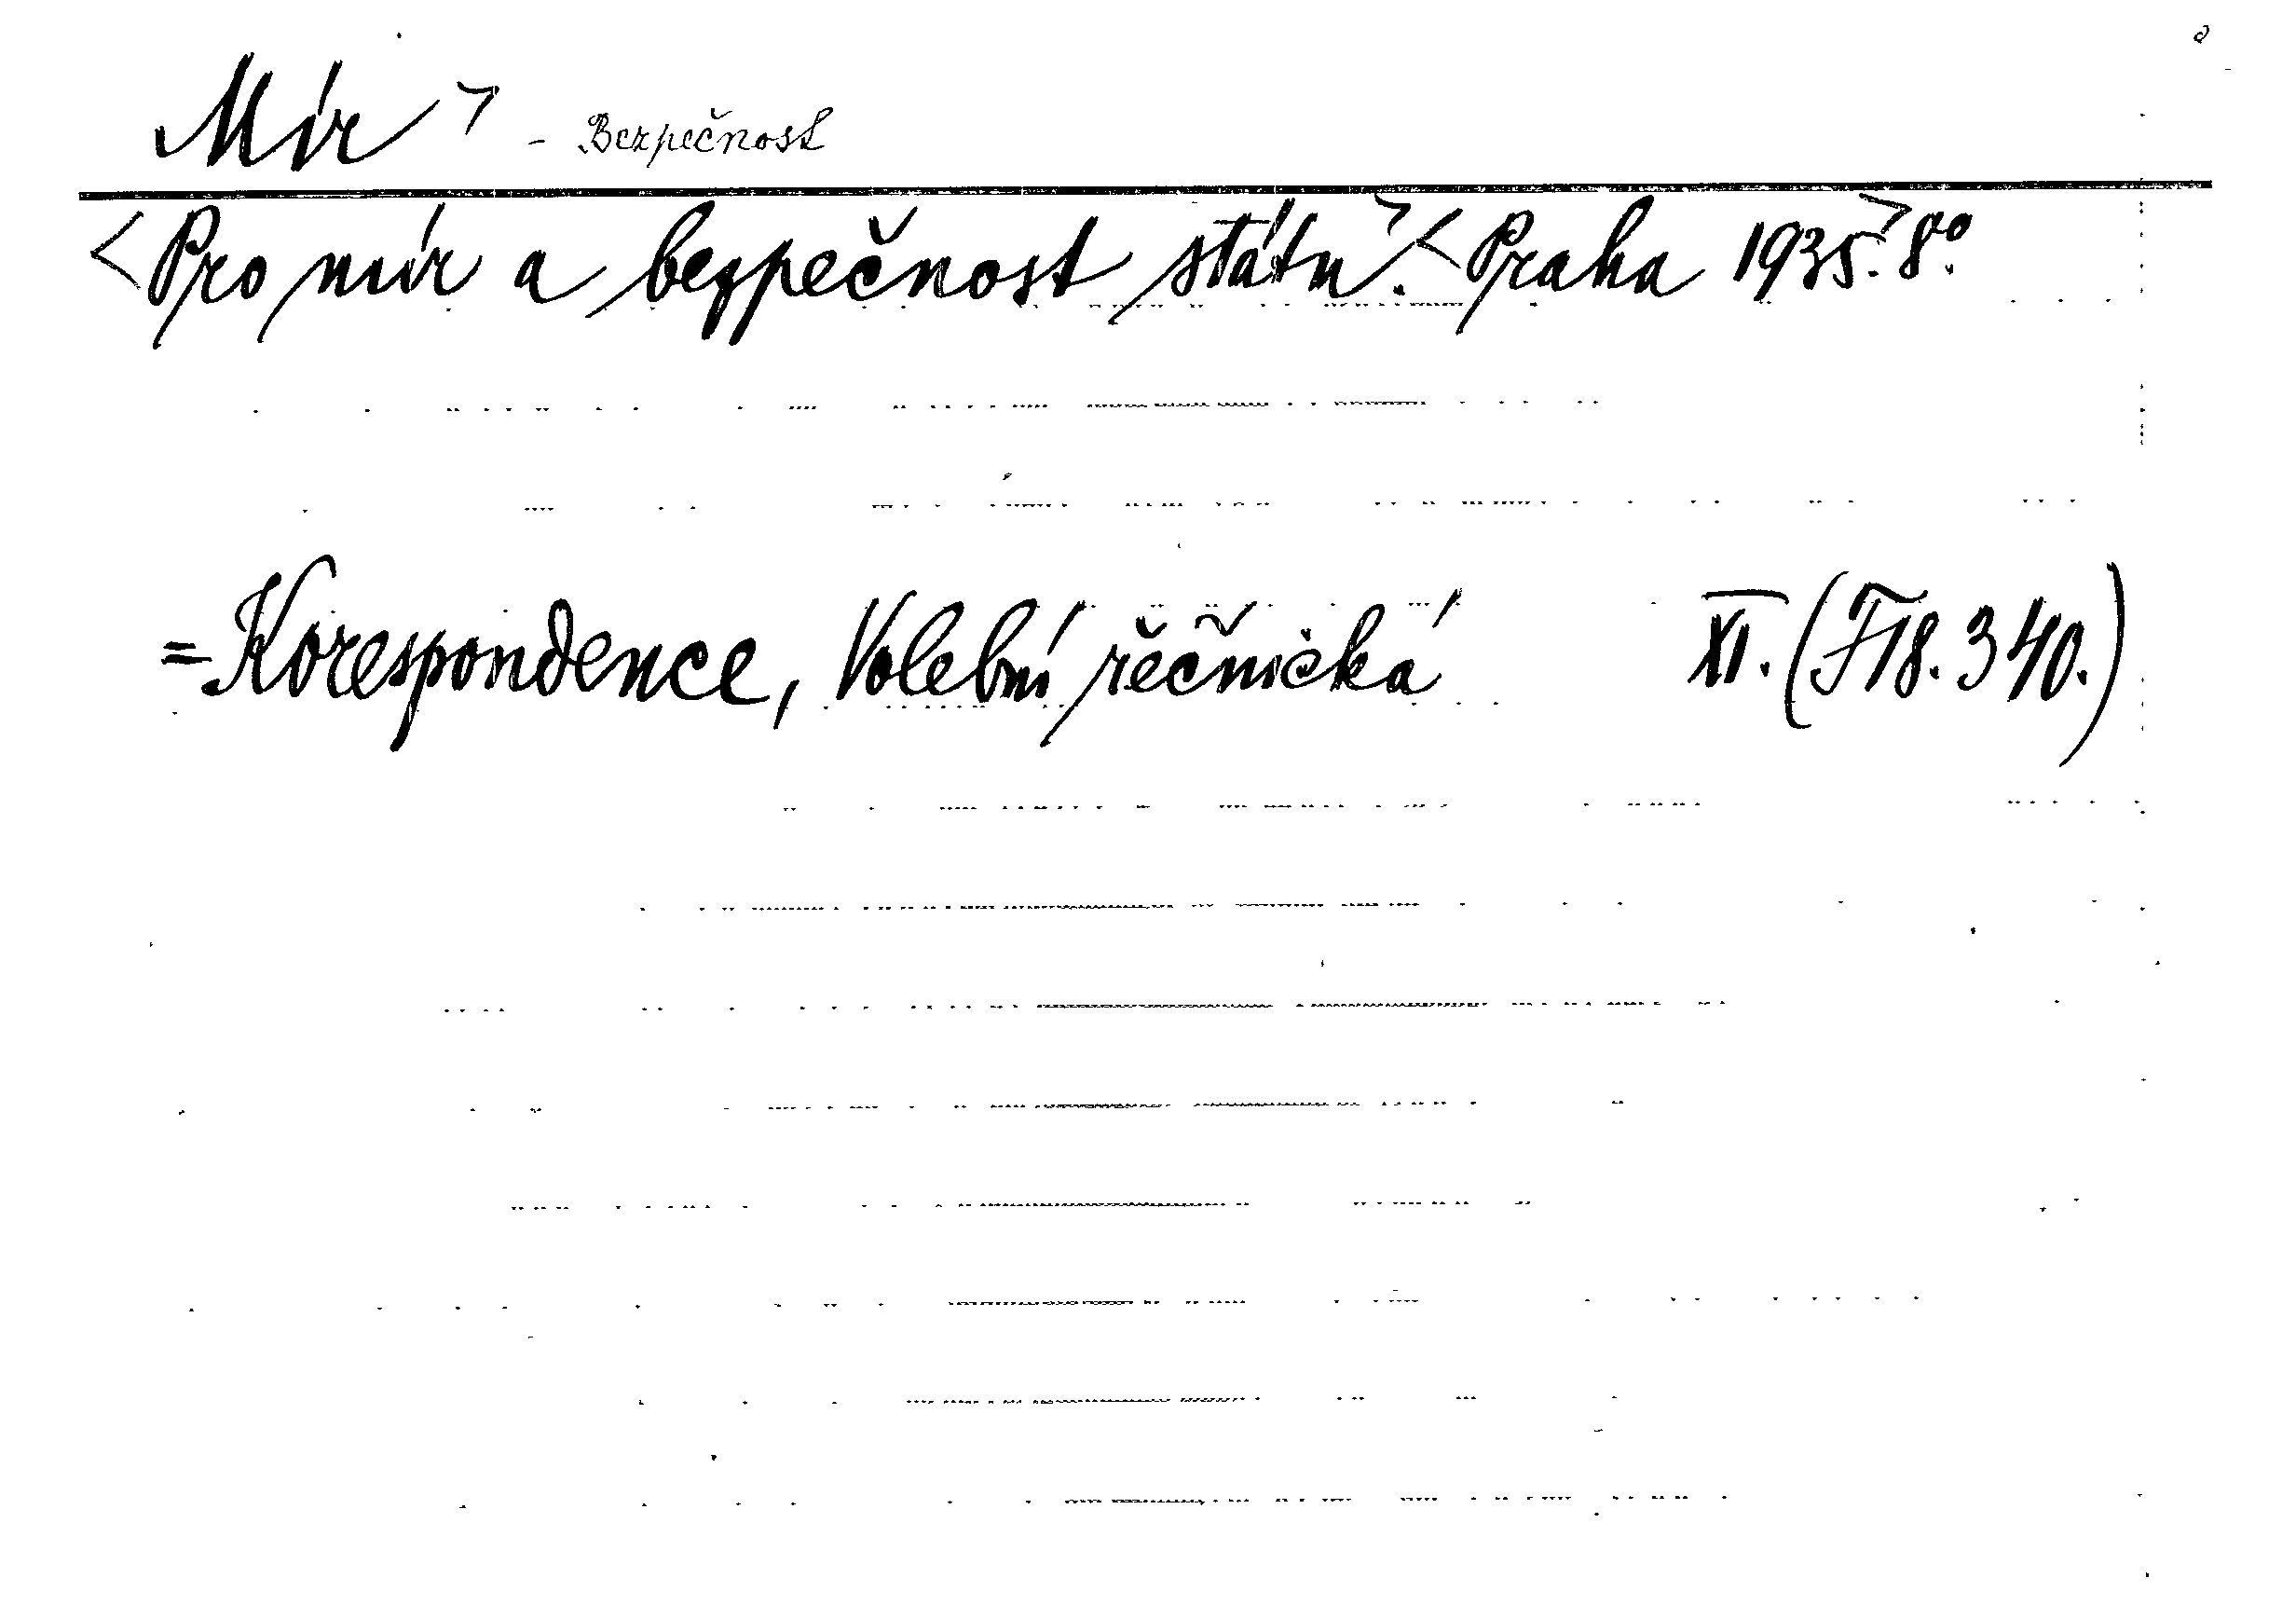 Mír> - Bezpečnost
<Pro mír a bezpečnost státu>.<Praha 1935.>8°.
=Korespondence, Volební řečnická XI.(F18.340.)